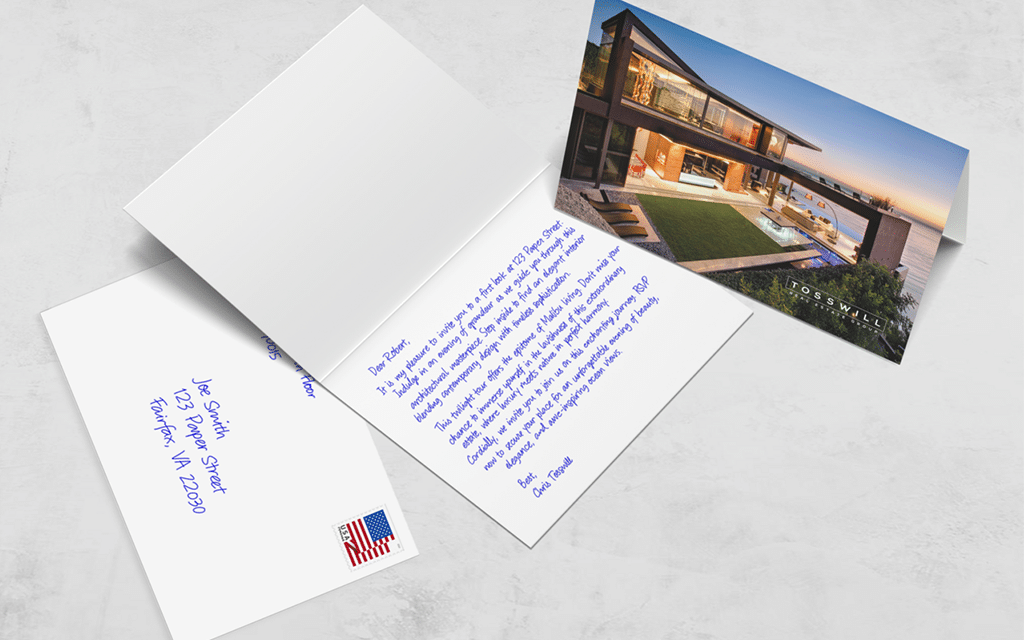 Dear Robert,
It is my pleasure to invite you to a first look at 123 Paper Street.
Indulge in an evening of grandeur as we guide you through this
architectural masterpiece. Step inside to find an elegant interior
blending contemporary design with timeless sophistication.
This twilight tour offers the epitome of Malibu living. Don't miss your
chance to immerse yourself in the lavishness of this extraordinary
estate, where luxury meets nature in perfect harmony.
Cordially, we invite you to join us on this enchanting journey. RSVP
now to secure your place for an unforgettable evening of beauty,
elegance, and awe-inspiring ocean views.
Best,
Chris Tosswill
TOSSWILL
REAL ESTATE GROUP
Floor
Joe Smith
123 Paper Street
Fairfax, VA 22030
USA